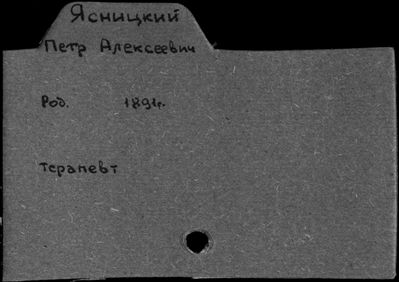 Ясницкий
Петр Алексеевич
Род. 1891г.
терапевт